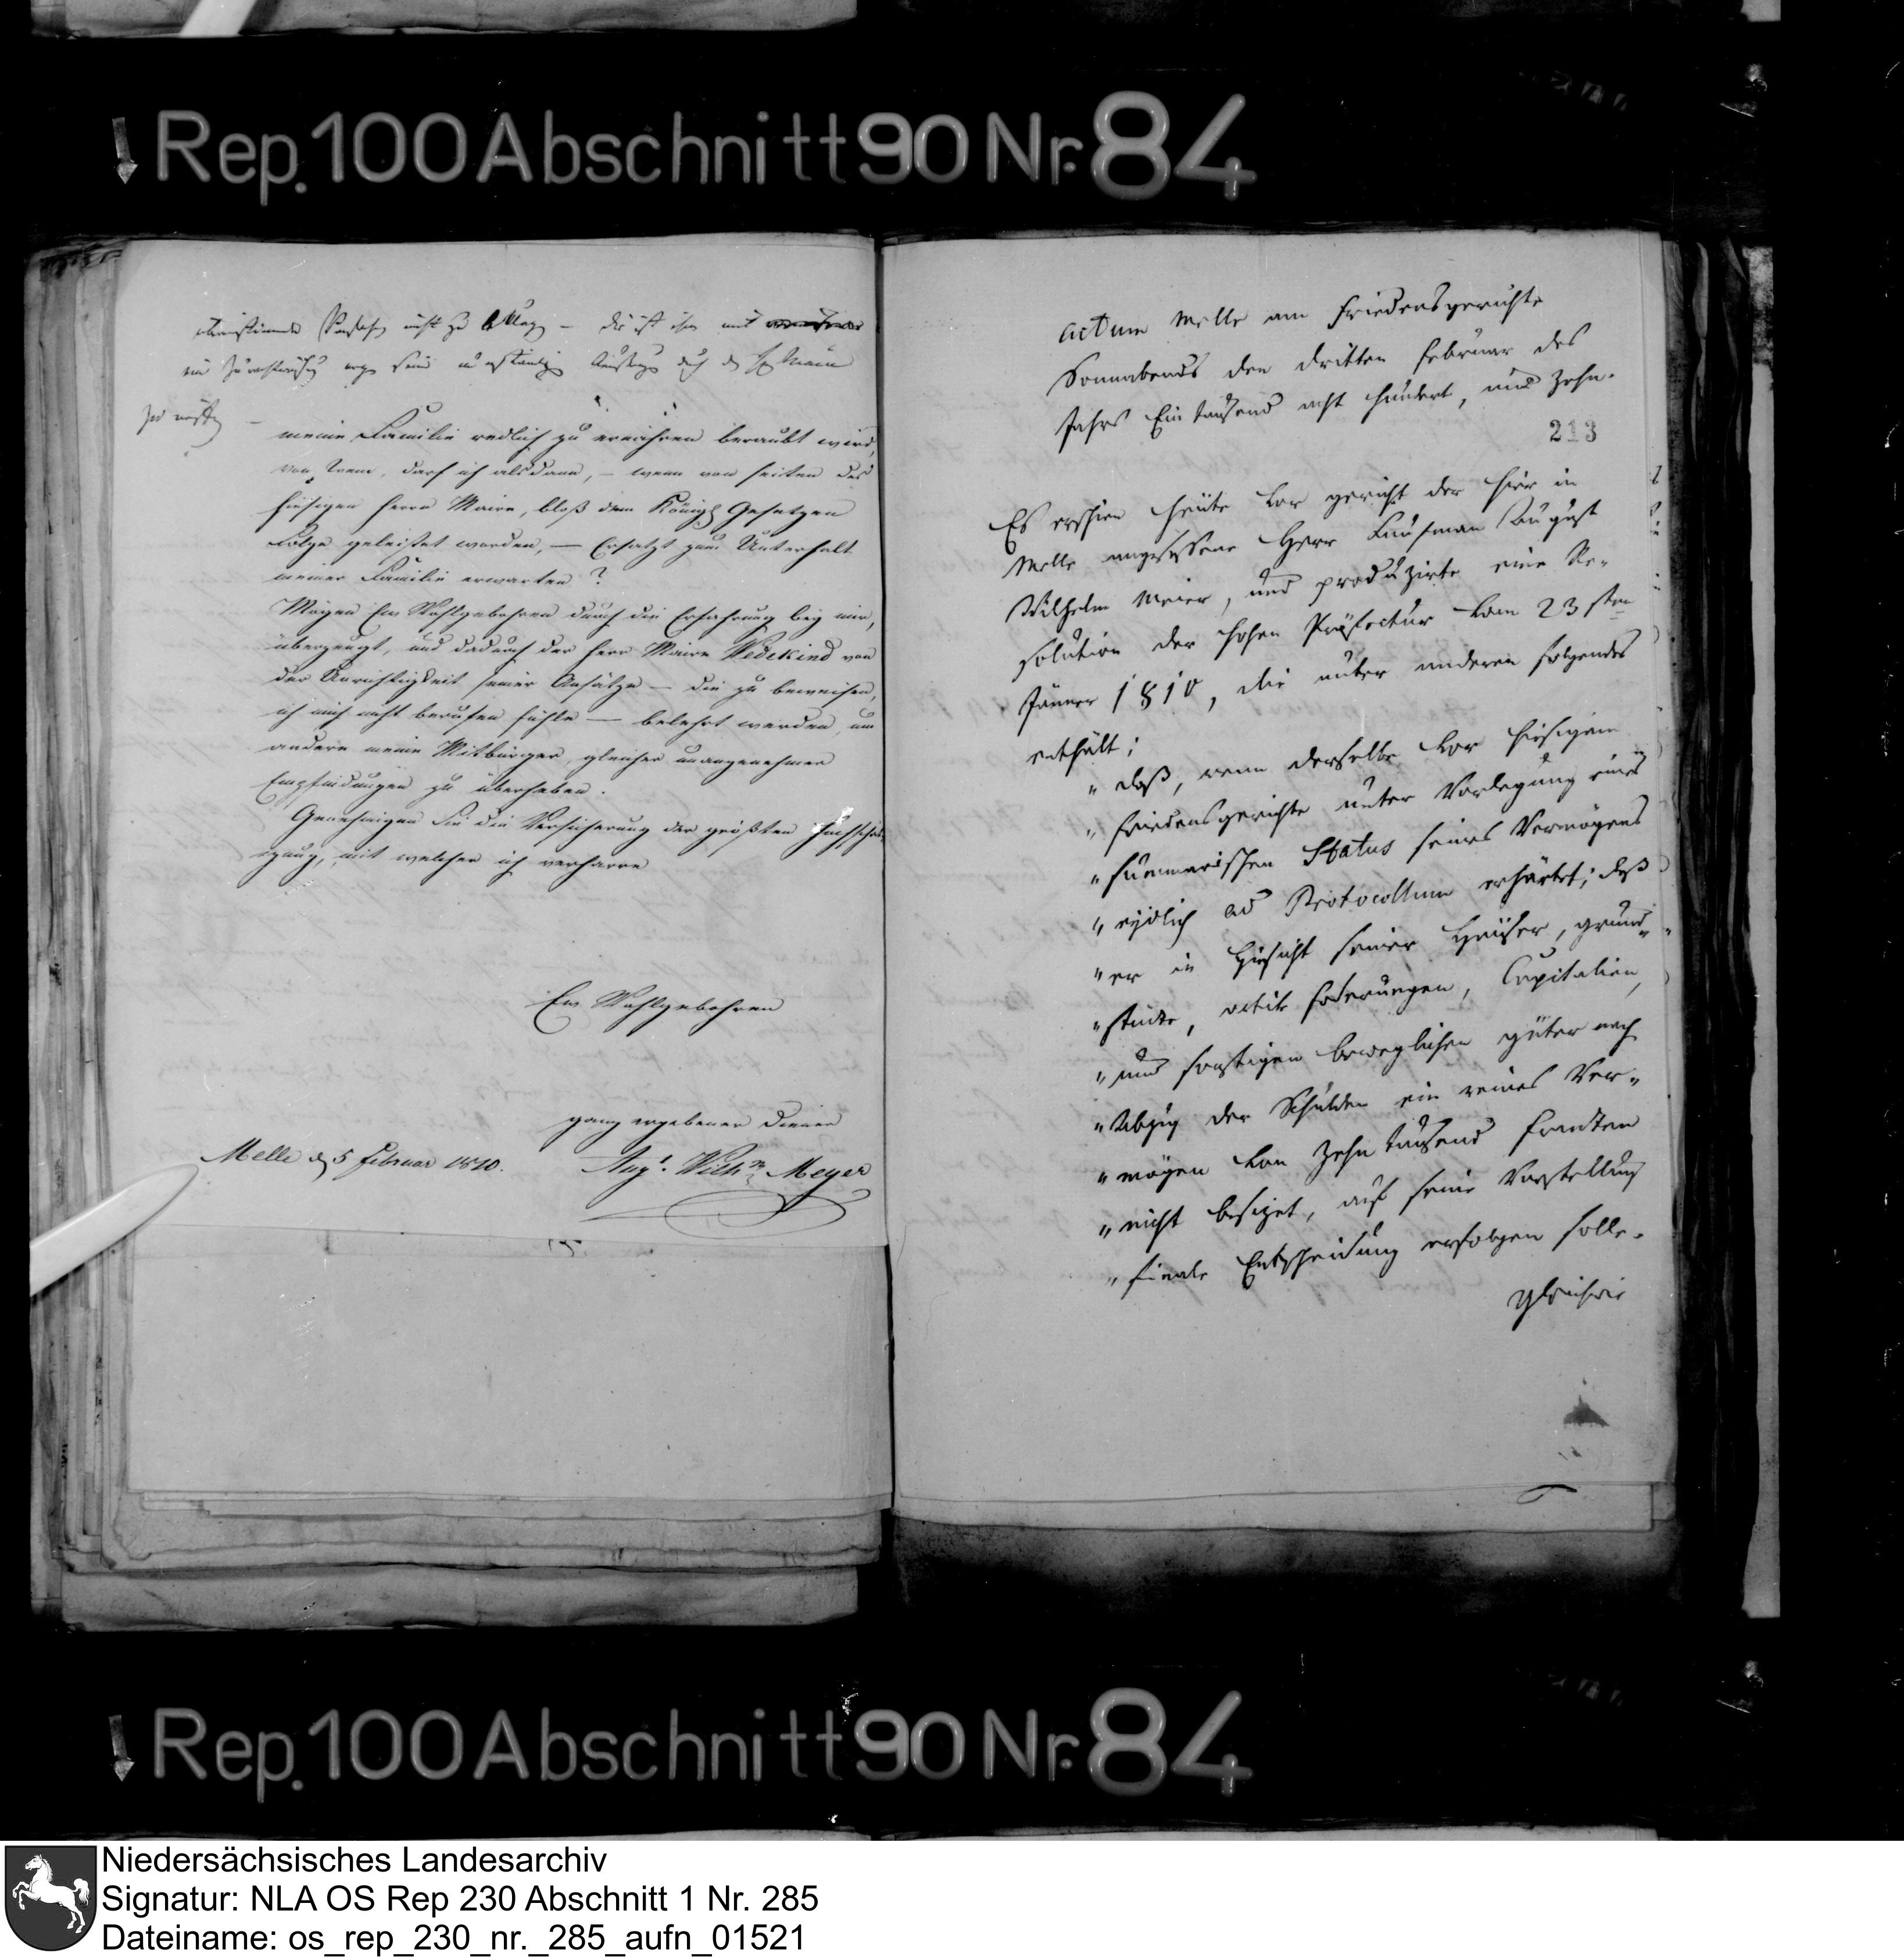 Rep. 100 Abschnitt 90 Nr. 84
nicht zu
meine Familie redlich zu ernähren beraubt wird,
von wem, darf ich alsdann, – wenn von seiten des
hiesigen Herrn Maire, bloß dem Königl Gesetzen
Folge geleistet worden, – Ersatz zum Unterhalt
meiner Familie erwarten?
Mögen Ew Wohlgebohren durch die Erfahrung bey mir,
überzeugt, und dadurch der Herr Maire Wedekind von
der Unrichtigkeit seiner Ansätze – die zu beweisen,
ich mich nicht berufen fühle – belehrt werden, um
andere meine Mitbürger, gleicher unangenehmer
Empfindungen zu überheben.
Genehmigen Sie die Versicherung der größten Hochschä-
zung, mit welcher ich verharre
Ew Wohlgebohren
ganz ergebener Diener
Melle d 5 Februar 1810.
Augt. Wilhm Meyer
Actum Melle am Friedensgerichte
Sonnabends den dritten Februar des
Jahrs Ein tausend acht hundert, und zehn.
213
Es erschien heute vor gericht der hier in
Melle angesessene Herr Kaufman August
Wilhelm Meier, und produzirte eine Re-
solution der hohen Präfectur vom 23 sten
Jänner 1810, die unter anderen folgendes
enthält;
" daß, wenn derselbe vor hiesigem
" Friedensgerichte unter Vorlegung eines
" summarischen Status seines Vermögens
" eydlich ad Protocollum erhärtet; daß
" er in Hinsicht seiner Häuser, grund-
" stücke, activ foderungen, Capitalien,
" und sonstigen beweglichen güter nach
" Abzug der Schulden ein reines Ver-
" mögen von zehn tausend Franken
" nicht besizet, auf seine Vorstellung
" finale Entscheidung erfolgen solle.
gleichwie
Rep. 100 Abschnitt 90 Nr. 84
Niedersächsisches Landesarchiv
Signatur: NLA OS Rep 230 Abschnitt 1 Nr. 285
Dateiname: os_rep_230_nr._285_aufn_01521